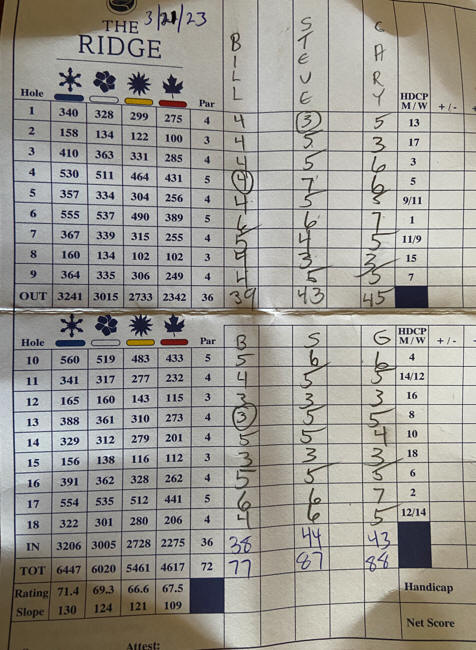 THE
RIDGE
3/21/23
BILL
STEVE
GARY
Hole Par HDCP M/W +/-
1 340 328 299 275 4 4 3 5 13
2 158 134 122 100 3 4 5 3 17
3 410 363 331 285 4 4 5 6 3
4 530 511 464 431 5 4 7 6 5
5 357 334 304 256 4 4 5 5 9/11
6 555 537 490 389 5 6 6 7 1
7 367 339 315 255 4 5 4 5 11/9
8 160 134 102 102 3 3 3 15
9 364 335 306 249 4 4 5 5 7
OUT 3241 3015 2733 2342 36 39 43 45
Hole Par B S G HDCP M/W +/-
10 560 519 483 433 5 5 6 6 4
11 341 317 277 232 4 4 5 5 14/12
12 165 160 143 115 3 3 3 3 16
13 388 361 310 273 4 3 5 5 8
14 329 312 279 201 4 5 5 4 10
15 156 138 116 112 3 3 3 3 18
16 391 362 328 262 4 5 5 5 6
17 554 535 512 441 5 6 6 7 2
18 322 301 280 206 4 4 6 5 12/14
IN 3206 3005 2728 2275 36 38 44 43
TOT 6447 6020 5461 4617 72 77 87 88
Rating 71.4 69.3 66.6 67.5 Handicap
Slope 130 124 121 109
Net Score
Attest: